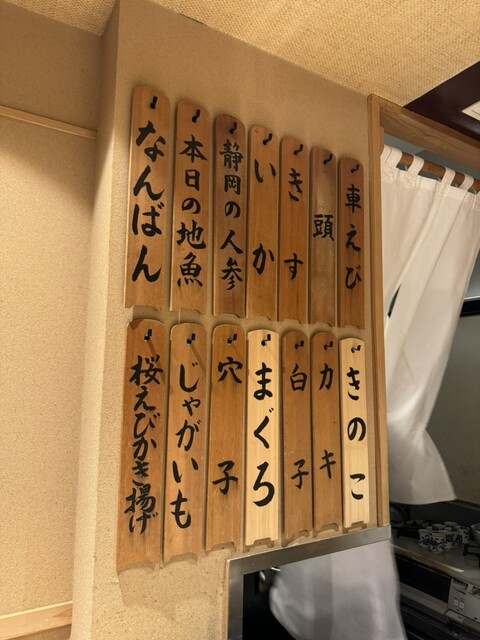 車えび
頭
きす
いか
静岡の人参
本日の地魚
なんばん
きのこ
カキ
白子
まぐろ
穴子
じゃがいも
桜えびかき揚げ